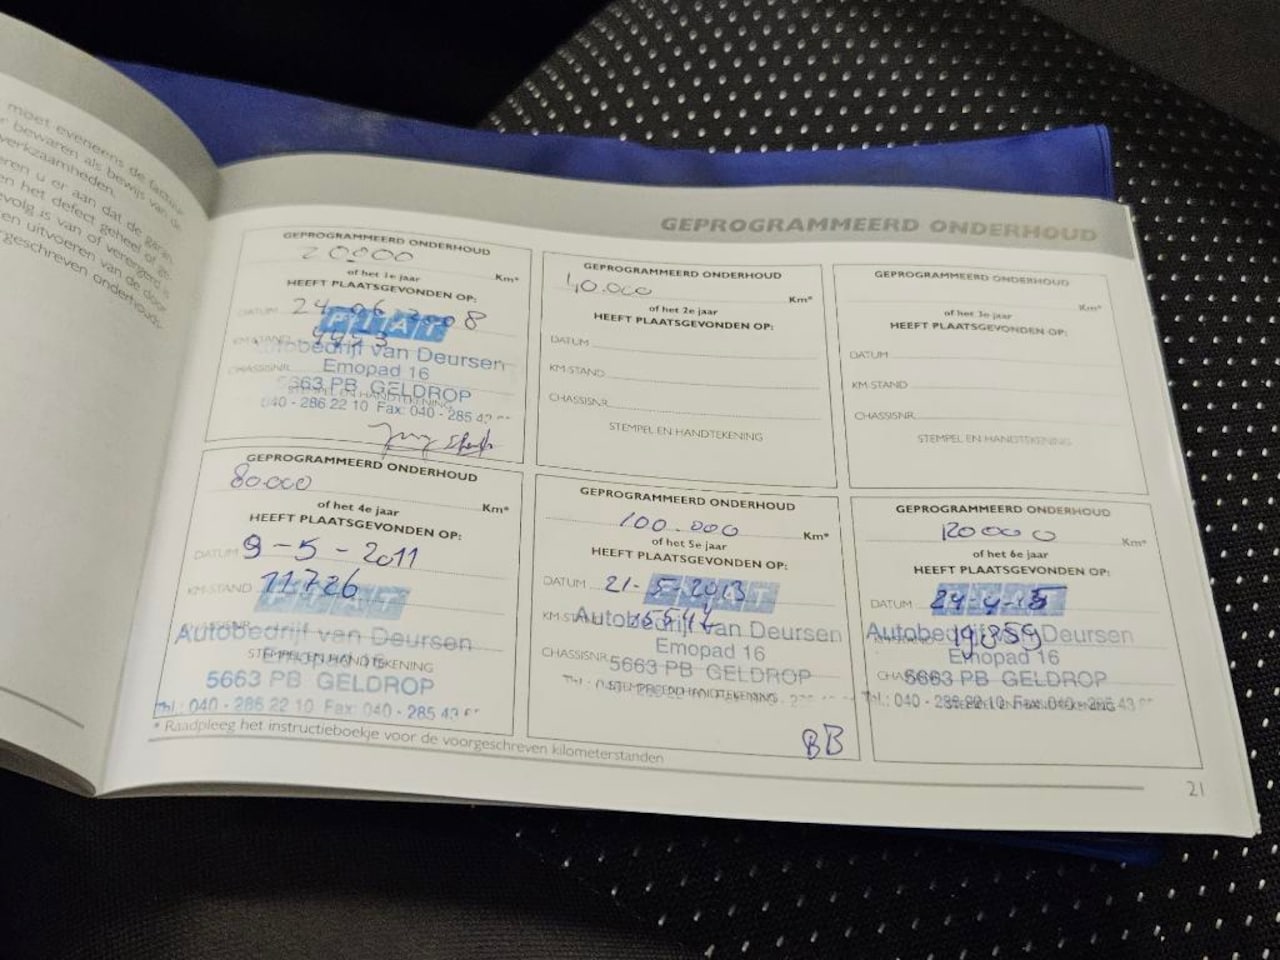 moet eveneens de factuur
bewaren als bewijs van de
werkzaamheden.
u er aan dat de
het defect geheel of
is van of verergerd is
uitvoeren van de door
onderhouds-
GEPROGRAMMEERD ONDERHOUD
GEPROGRAMMEERD ONDERHOUD
20.000
Km*
of het 1e jaar
HEEFT PLAATSGEVONDEN OP:
DATUM 24-06-2008
FIAT
KM-STAND
Autobedrijf van Deursen
Emopad 16
CHASSISNR.
5663 PB GELDROP
STEMPEL EN HANDTEKENING
040 - 286 22 10 Fax: 040 - 285 43
GEPROGRAMMEERD ONDERHOUD
40.000
Km*
of het 2e jaar
HEEFT PLAATSGEVONDEN OP:
DATUM
KM-STAND
CHASSISNR.
STEMPEL EN HANDTEKENING
GEPROGRAMMEERD ONDERHOUD
Km*
of het 3e jaar
HEEFT PLAATSGEVONDEN OP:
DATUM
KM-STAND
CHASSISNR.
STEMPEL EN HANDTEKENING
GEPROGRAMMEERD ONDERHOUD
80.000
Km*
of het 4e jaar
HEEFT PLAATSGEVONDEN OP:
DATUM 9-5-2011
KM-STAND 11726
FIAT
Autobedrijf van Deursen
Emopad 16
STEMPEL EN HANDTEKENING
5663 PB GELDROP
Tel.: 040 - 286 22 10 Fax: 040 - 285 43
GEPROGRAMMEERD ONDERHOUD
100.000
Km*
of het 5e jaar
HEEFT PLAATSGEVONDEN OP:
DATUM 21-5-2013
FIAT
KM-STAND 15544
Autobedrijf van Deursen
Emopad 16
CHASSISNR.
5663 PB GELDROP
STEMPEL EN HANDTEKENING
BB
GEPROGRAMMEERD ONDERHOUD
120000
Km*
of het 6e jaar
HEEFT PLAATSGEVONDEN OP:
DATUM 24-4-15
FIAT
Autobedrijf van Deursen
19859
Emopad 16
5663 PB GELDROP
Tel.: 040 - 286 22 10 Fax: 040 - 285 43
STEMPEL EN HANDTEKENING
* Raadpleeg het instructieboekje voor de voorgeschreven kilometerstanden
21